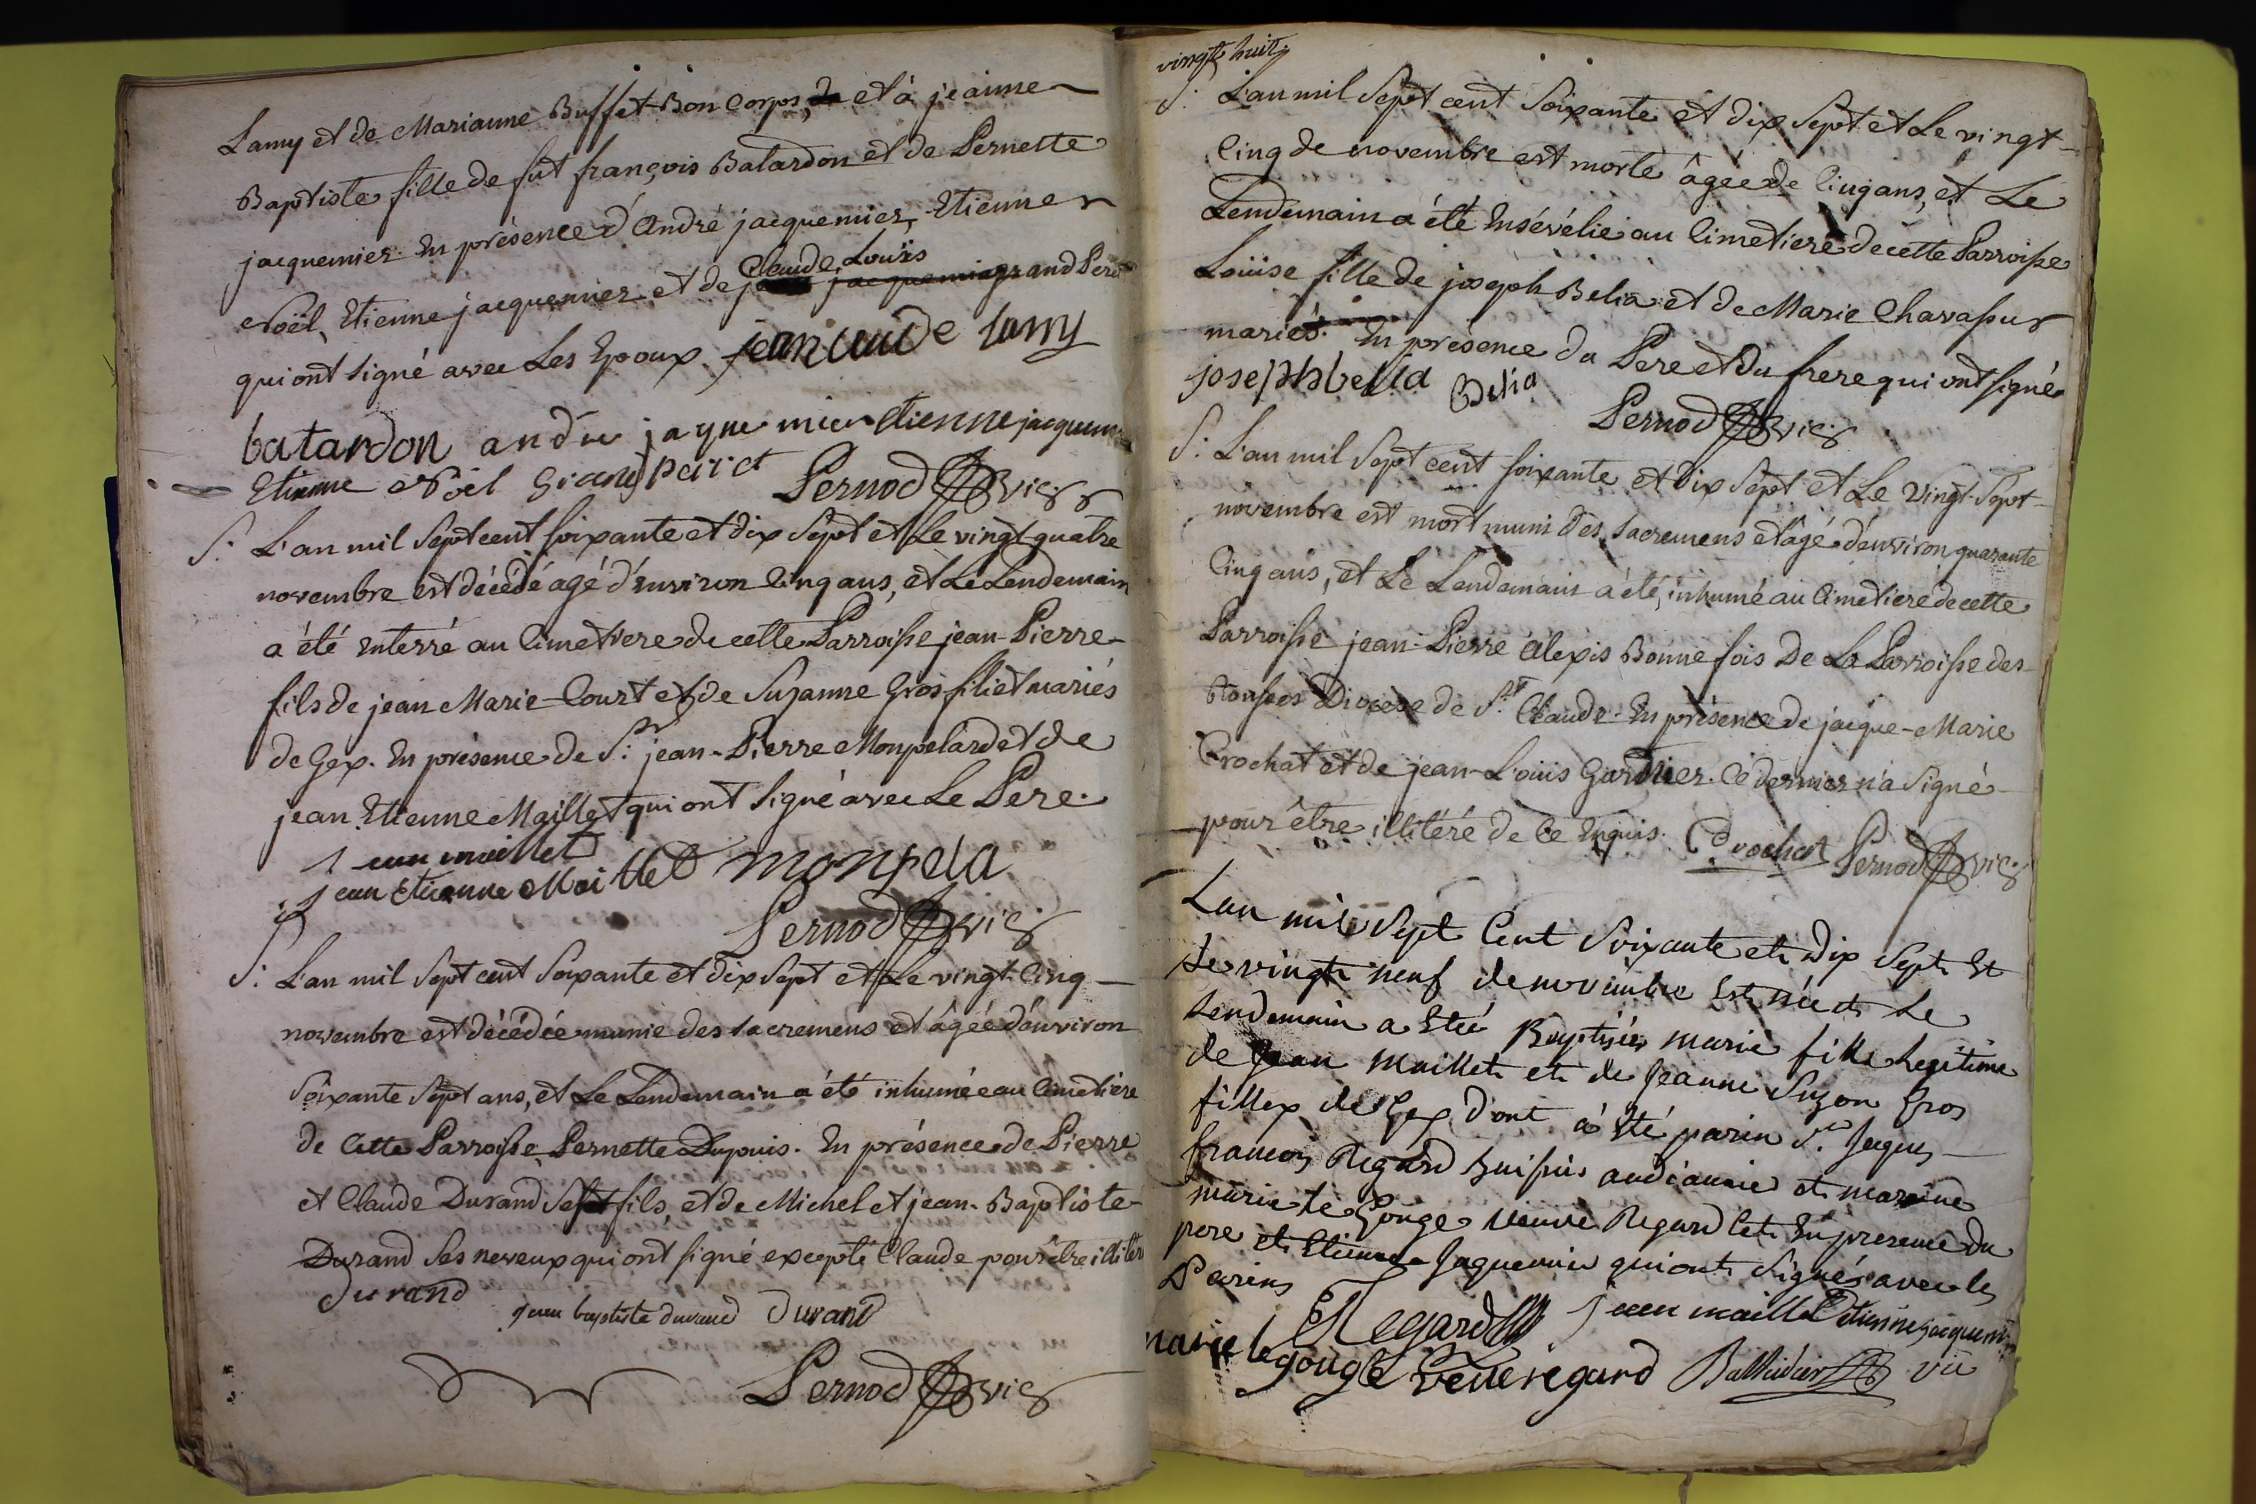 Lamy et de Marianne Buffet-Bon Corps, et à jeanne
Baptiste fille de fût françois Batardon et de Pernette
jacquemier. En présence d'André jacquemier, Etienne
Claude Louïs
Noël, Etienne jacquemier et de grand Peret
qui ont signé avec Les Epoux. jean claude lamy
batardon andre jaque mier etienne jacquem
Etienne Noël Grand peret Pernod vic:
S: L'an mil Sept cent soixante et dix sept et Le vingt quatre
novembre est décédé agé d'Environ Cinq ans, et Le Lendemain
a été enterré au Cimetiere de cette Parroisse jean-Pierre
fils de jean Marie-Court et de Suzanne Gros filiet mariés
de Gex. En présence de Sr: jean-Pierre Monpelard et de
jean Etienne Maillet qui ont signé avec Le Pere.
jean maillet
jean Etienne Maillet monpela
Pernod vic:
S: L'an mil Sept cent Soixante et dix sept et Le vingt Cinq
novembre est décédée munie des sacremens et âgée d'environ
Soixante Sept ans, et Le Lendemain a été inhumée au Cimetiére
de Cette Parroisse Pernette Dupuis. En présence de Pierre
et Claude Durand Ses fils et de Michel et jean-Baptiste
Durand Ses neveux qui ont signé excepté Claude pour être illitéré
Durand jean baptiste durand Durand
Pernod vic:
vingt huit
S: L'an mil Sept cent Soixante et dix Sept et Le vingt
Cinq de novembre est morte âgée de Cinq ans, et Le
Lendemain a été Ensévélie au Cimetiere de cette Parroisse
Loüise fille de joseph Belia et de Marie Chavassus
mariés. En présence du Pere et du frere qui ont signé
joseph belia Belia
Pernod vic:
S: L'an mil Sept cent soixante et dix Sept et Le vingt-Sept
novembre est mort muni des sacremens et âgé d'environ quarante
Cinq ans, et Le Lendemain a été inhumé au Cimetiere de cette
Parroisse jean-Pierre Alexis Bonne fois De La Parroisse des
Rousses Diocese de St Claude. En présence de jacque-Marie
Crochat et de jean-Loüis Garnier. Ce dernier n'a signé
pour être illitéré de Ce Enquis. Crochat Pernod vic:
Lan mil Sept Cent Soixante et Dix Sept Et
Le vingt neuf de novembre Est née et Le
Lendemain a Eté Baptisée marie fille Legitime
de Jean Maillet et de Jeanne Suzon Gros
fillex de Gex dont à Eté parin Sr Jaques
francois Regard huissier audiancié et marene
marie le Gouge veuve Regard Et En presence du
pere et Etienne Jaquemier qui ont Signés avec les
Parins
Regard jean maillet Etienne jacquem
marie legouge veuve regard Balthidier vic